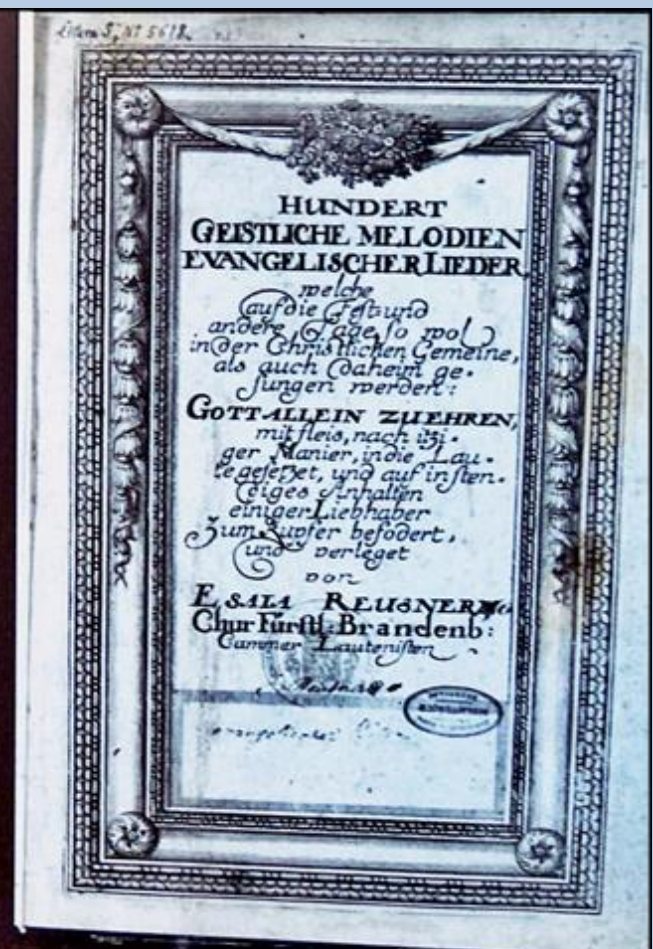 Nº 5618.
HUNDERT
GEISTLICHE MELODIEN
EVANGELISCHER LIEDER,
welche
auf die Fest und
andere Tage so wol
in der Christlichen Gemeine,
als auch daheim ge-
sungen werden:
GOTT ALLEIN ZU EHREN,
mit fleis, nach itzi-
ger Manier, in die Lau-
te gesetzet, und auf insten-
diges Anhalten
einiger Liebhaber
Zum Kupfer befodert,
und verleget
von
ESAIA REUSNER
Chur Fürstl: Brandenb:
Cammer Lautenisten